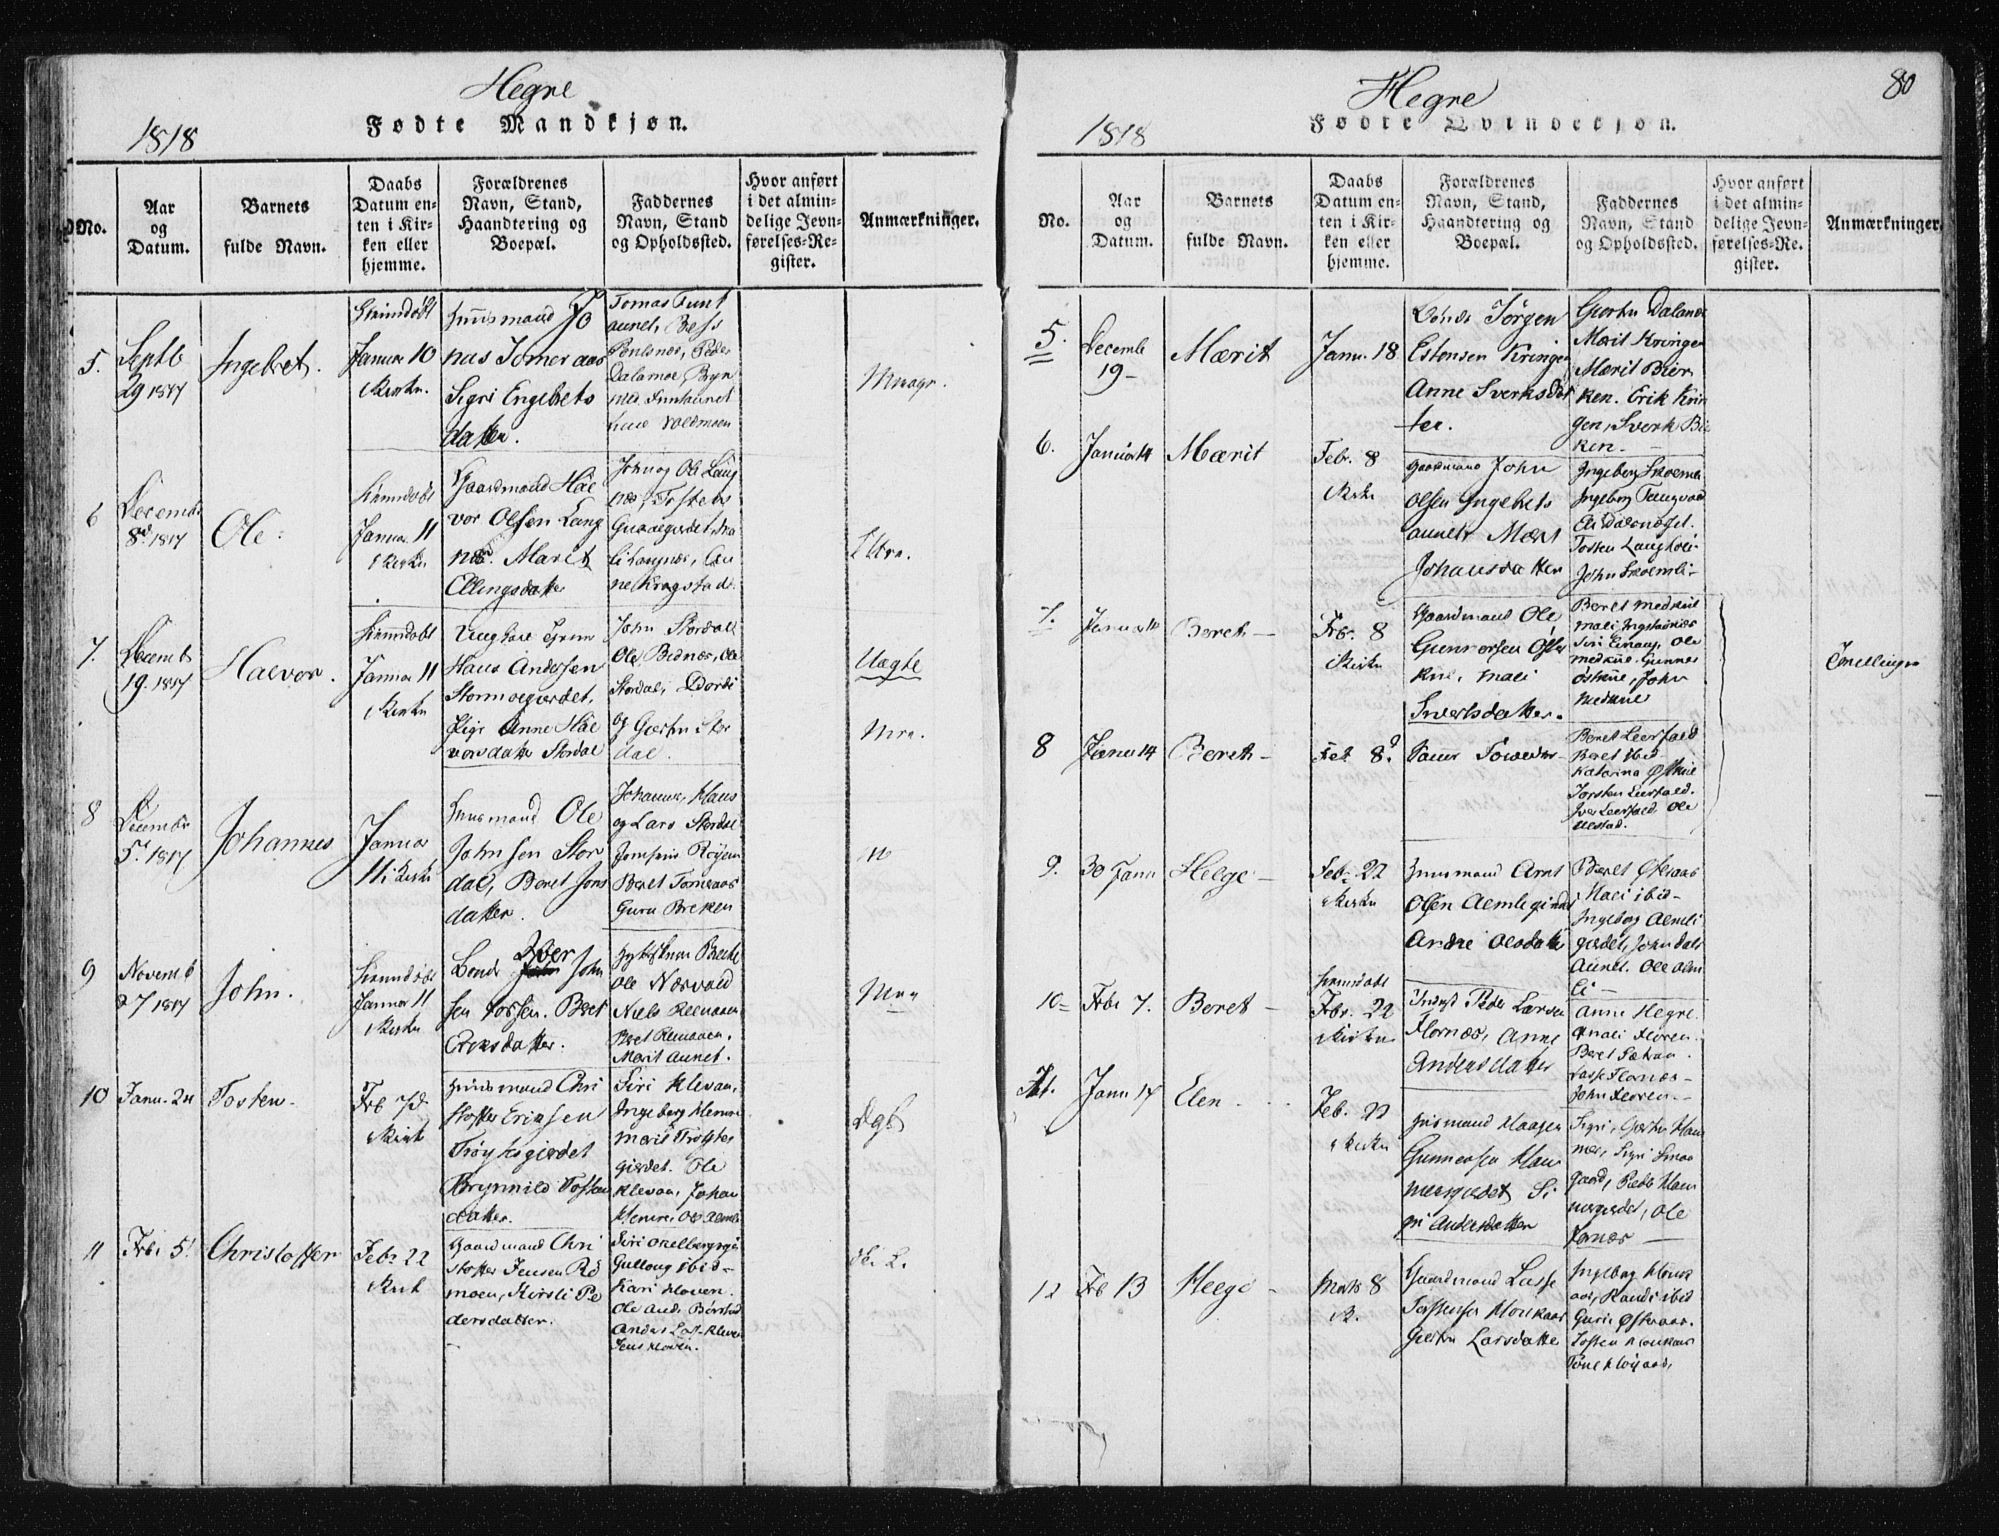 Hegre
1818
Fødte Mandkjøn.
No.
Aar
og
Datum.
Barnets
fulde Navn.
Daabs
Datum en-
ten i Kir-
ken eller
hjemme.
Forældrenes
Navn, Stand,
Haandtering og
Boepæl.
Faddernes
Navn, Stand
og Opholdssted.
Hvor anført
i det almin-
delige Jevn-
førelses-Re-
gister.
Anmærkninger.
5.
Septb
29 1817
Ingebret.
Hiemdøbt
Januar 10
Kirken.
Huusmand Jo
nas
Sigri Engebrets
datter.
Tomas
aunet,
Dalamoe, Bryn
6
Decembr
8de 1817
Ole.
Hiemdøbt
Januar 11
i Kirken
Gaardmand Hal
vor Olsen Lang
næs. Marit
Ellingsdatter
John og Ole Lang
næs, Tosten
li Langnæs, An
ne Krogstad.
7.
Decemb
19. 1817
Halvor.
Hiemdøbt
Januar 11
i Kirken
Ungkarl
Hans Andersen
Stormoegiærdet.
Pige Anne Hal
vorsdatter Stordal
John Stordal
Ole Bidnæs, Ole
Stordal, Dordi
og Giertru Stor
dal.
Uægte
8
Decembr
5te 1817
Johannes
Januar
11 i Kirken
Huusmand Ole
Johnsen Stor
dal, Beret Jons
datter.
Johanna, Klaus
og Lars Stordal
Beret Tomeraas
Guru Breken
9
Novemb
27 1817
John.
Hiemdøbt
Januar 11
i Kirken
Bonde Iver John
sen Forsen. Beret
Eriksdatter.
Ole Næsvold
Niels Reemaaen
Beret Remaaen.
Marit Aunet.
10
Janu. 24
Tosten.
Feb 7d
i Kirk
Huusmand Chri
stoffer Eriksen
Trøytesgierdet
Brynnild Tosten
datter.
Siri Klevan,
Ingeborg Hemre
Merit Trøytes
gierdet. Ole
Klevan, Johan
Hemre,
11
Feb. 5t
Christoffer
Febr 22
i Kirk
Gaardmand Chri
stoffer Jensen Rø
moen, Kirsti Pe
dersdatter.
Gullaug ibid
Kari Kloven.
Ole And.
Anders
Jens Kloven.
Hegre
80
1818
Fødte Qvindekjøn.
No.
Aar
og
Datum.
Barnets
fulde Navn.
Daabs
Datum en-
ten i Kir-
ken eller
hjemme.
Forældrenes
Navn, Stand,
Haandtering og
Boepæl.
Faddernes
Navn, Stand
og Opholdssted.
Hvor anført
i det almin-
delige Jevn-
førelses-Re-
gister.
Anmærkninger.
5.
Decembe
19
Mærit
Janu. 18
Bonde Jørgen
Estensen Kringen
Anne Sverksdat
ter.
Giertru Daland
Mærit Kringen
Mærit Bier
ken. Erik Krin
gen, Sverk Bier
ken.
6.
Janua 14
Mærit
Febr. 8
i Kirken
Gaardmand John
Olsen Ingebrets
aunet. Mærit
Johansdatter
Ingeborg Skoemli
Ingeborg Tangvold
Tosten Langholi
John Skoemli
7.
Janua 11
Beret
Febr. 8
i Kirken
Gaardmand Ole
Gunnersen Øst
kiil, Mali
Sverksdatter.
Beret Medkiil
Mali Ingstadnæs
Siri Einang, Ole
Medkiil. Gunner
Østkiil, John
Medkiil
Tvillinger
8
Janua 14
Beret
Feb 8d
Samme Forældre
Beret Leerfald
Beret ibid
Katarina Østkiil
Torsten Leerfald.
Iver Leerfald Ole
9.
30 Janu
Helge
Febr. 22
i Kirken
Huusmand Arnt
Olsen Aemlegierdet
Andri Olsdatter
Beret Østeraas
Mali ibid
Ingeborg Aemli
giærdet, John Dals
Aunet. Ole Alm
li
10
Febr 7.
Beret
Hiemdøbt
Febr. 22
i Kirken
Inderst Peder Larsen
Flornæs, Anne
Andersdatter
Anne Hegre.
Mali Floren.
Beret Sætran.
Lasse Flornæs
John Floren.
11.
Janu 14
Elen
Feb. 22
i Kirken
Huusmand Haagen
Gunnersen Ham
mergiærdet Si
gri Andersdatter
Sigri, Giertru Ham
mer, Sigri Smaa
gaard, Peder Ham
mergierdet, Ole
Fornæs
12
Feb 13
Helge
Marts 8
i K.
Gaardmand Lasse
Torstensen Houkaas
Giertru Larsdatter
Ingeborg Houk
aas, Randi ibid
Guri Østeraas.
Tosten Houkaas